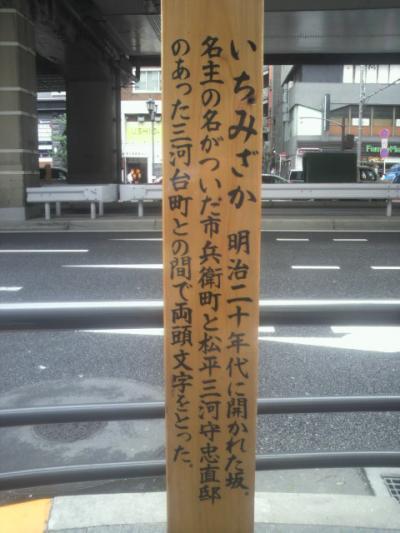 いちみざか 明治二十年代に開かれた坂。
名主の名がついた市兵衛町と松平三河守忠直邸
のあった三河台町との間で両頭文字をとった。